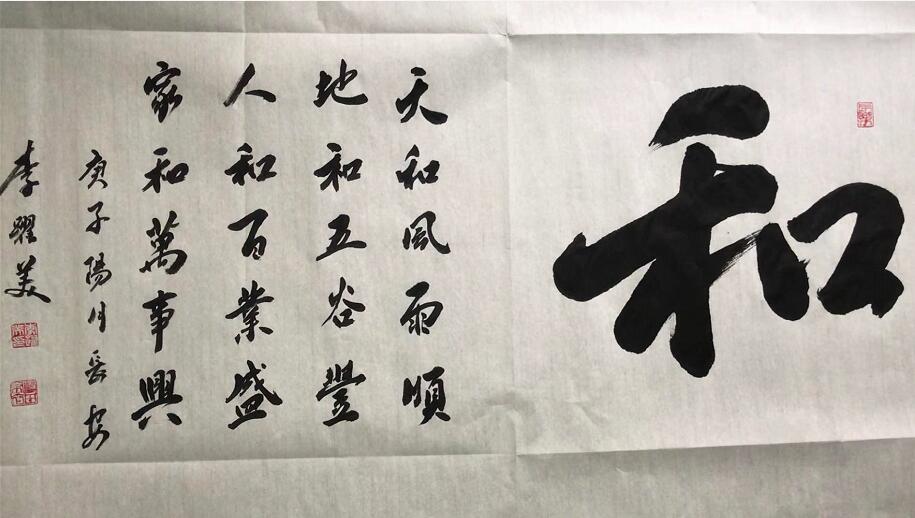 和
天和風雨順
地和五谷豐
人和百業盛
家和萬事興
庚子陽月長安
李躍美